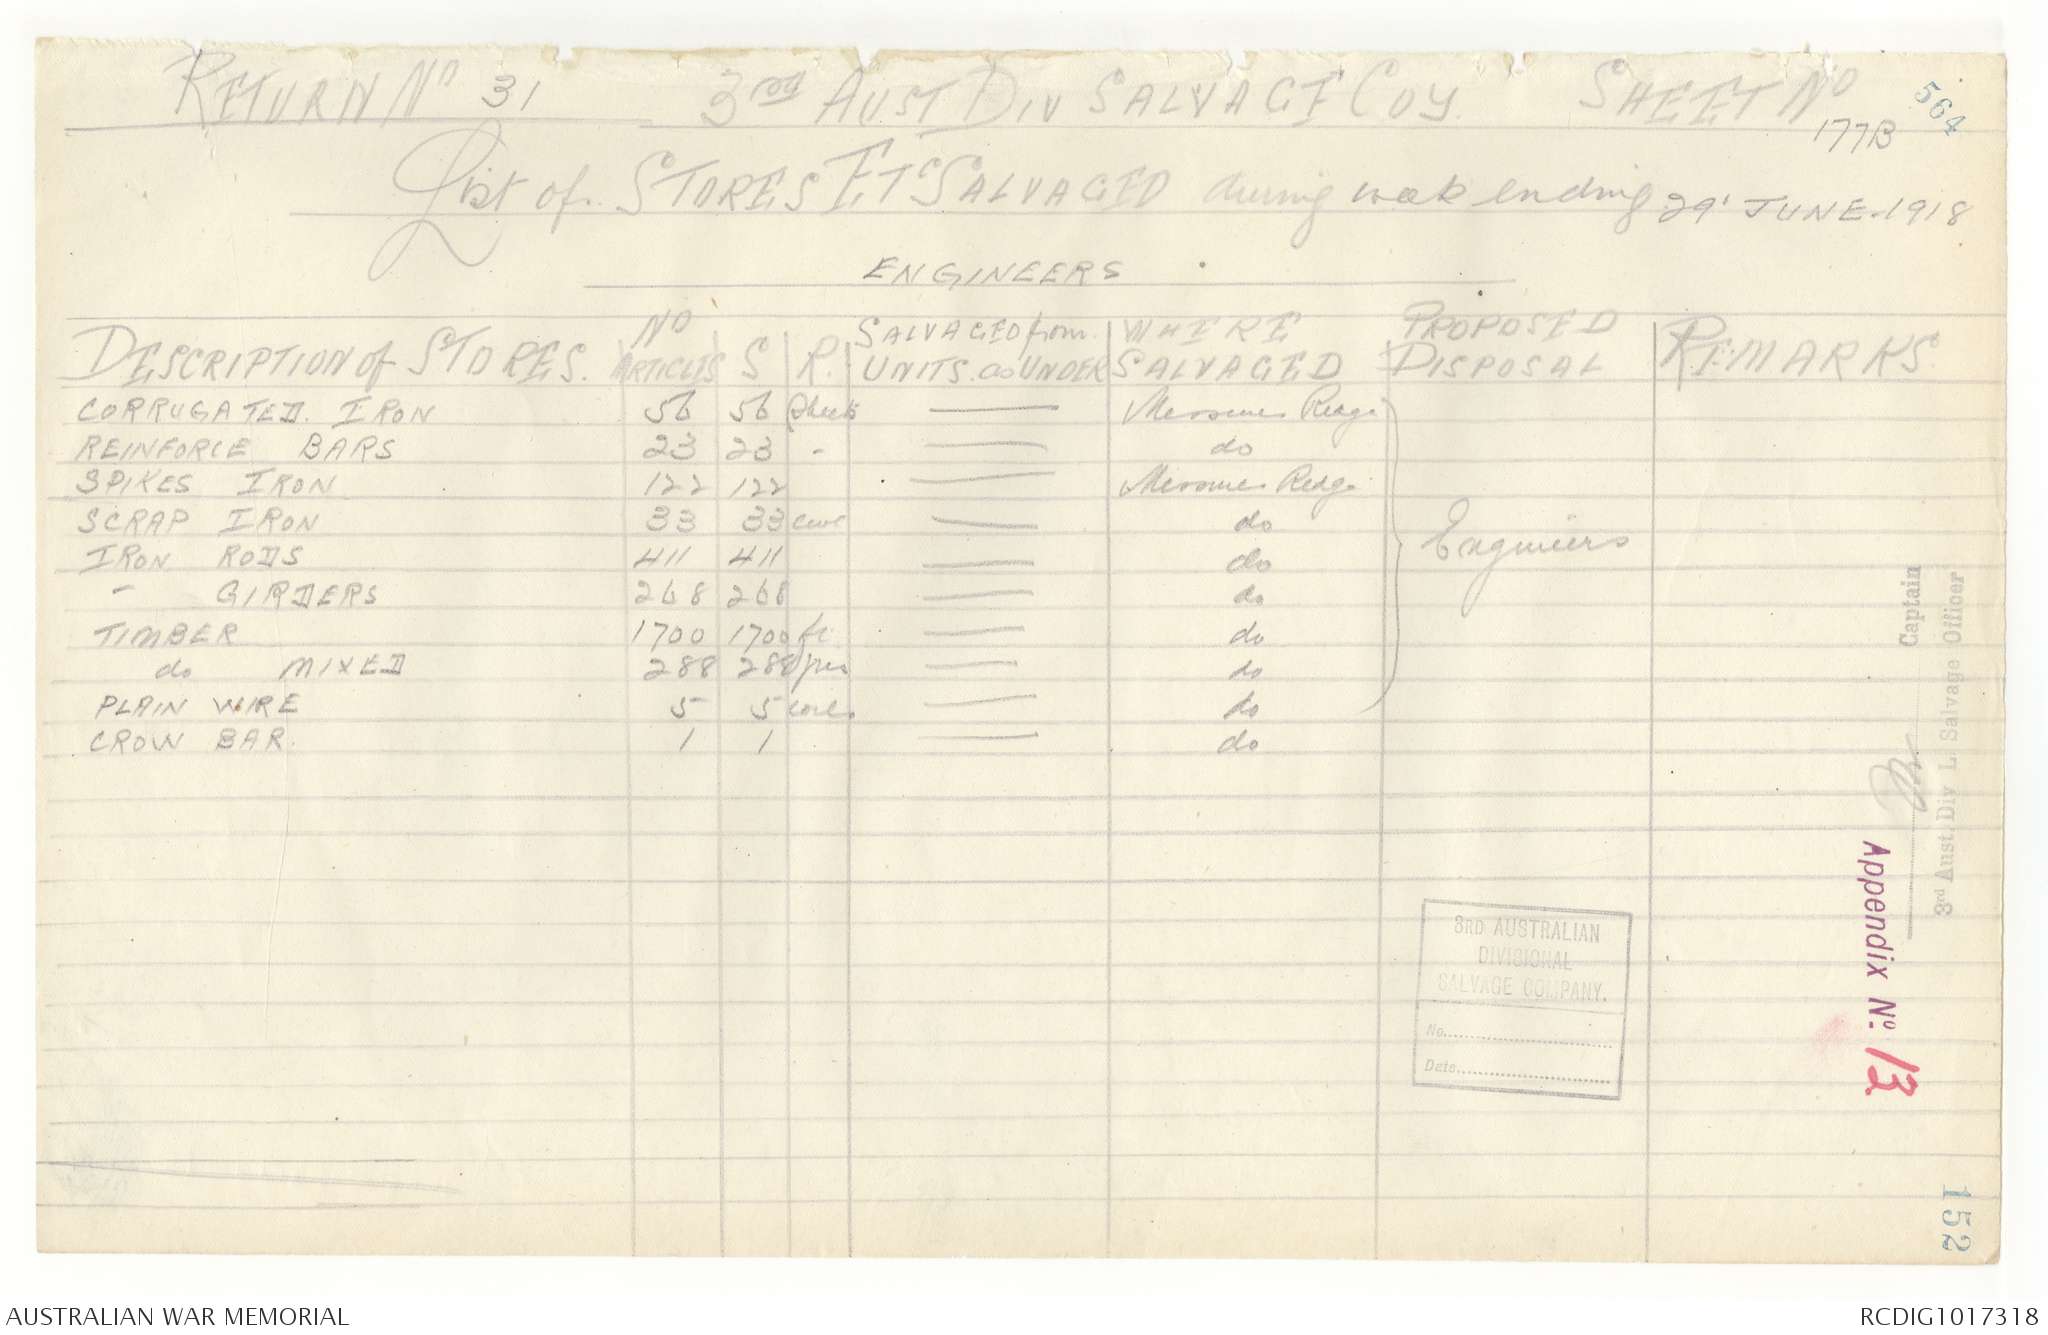 RETURN No 31 3rd AUST DIV SALVAGE COY. SHEET No 177B
564
List of STORES ETC SALVAGED during week ending 29' JUNE-1918
ENGINEERS
DESCRIPTION of STORES. No ARTICLES S R. SALVAGED from UNITS. as UNDER WHERE SALVAGED PROPOSED DISPOSAL REMARKS.
CORRUGATED. IRON 56 56 Sheets — Messines Redge
REINFORCE BARS 23 23 - — do
SPIKES IRON 122 122 — Messines Redge
SCRAP IRON 33 33 cwt — do
IRON RODS 411 411 — do
Engineers
- GIRDERS 268 268 — do
TIMBER 1700 1700 ft — do
do MIXED 288 288 pcs — do
PLAIN WIRE 5 5 coils — do
CROW BAR. 1 1 — do
Captain
3rd Aust. Div L. Salvage Officer
Appendix No. 13
3RD AUSTRALIAN
DIVISIONAL
SALVAGE COMPANY.
No.
Date
152
AUSTRALIAN WAR MEMORIAL RCDIG1017318